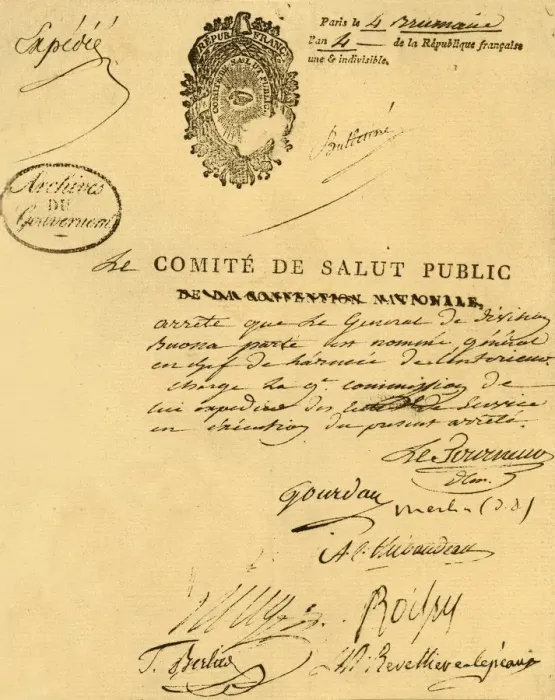 Expédié
RÉPUB. FRANÇ.
COMITÉ DE SALUT PUBLIC
Paris le 4 Brumaire
l'an 4 — de la République française
une & indivisible.
Bulletiné
Archives
DU
Gouvernemt
Le COMITÉ DE SALUT PUBLIC
DE LA CONVENTION NATIONALE,
arrête que Le Général de Division
Buona parte est nommé général
en chef de l'armée de l'intérieur
charge La 9e commission de
lui expédier des de Service
en exécution du présent arrêté.
Le Tourneur
Gourdan Merlin (d. d)
A. C. Thibaudeau
T. Berlier L M Revelliere-lepeaux